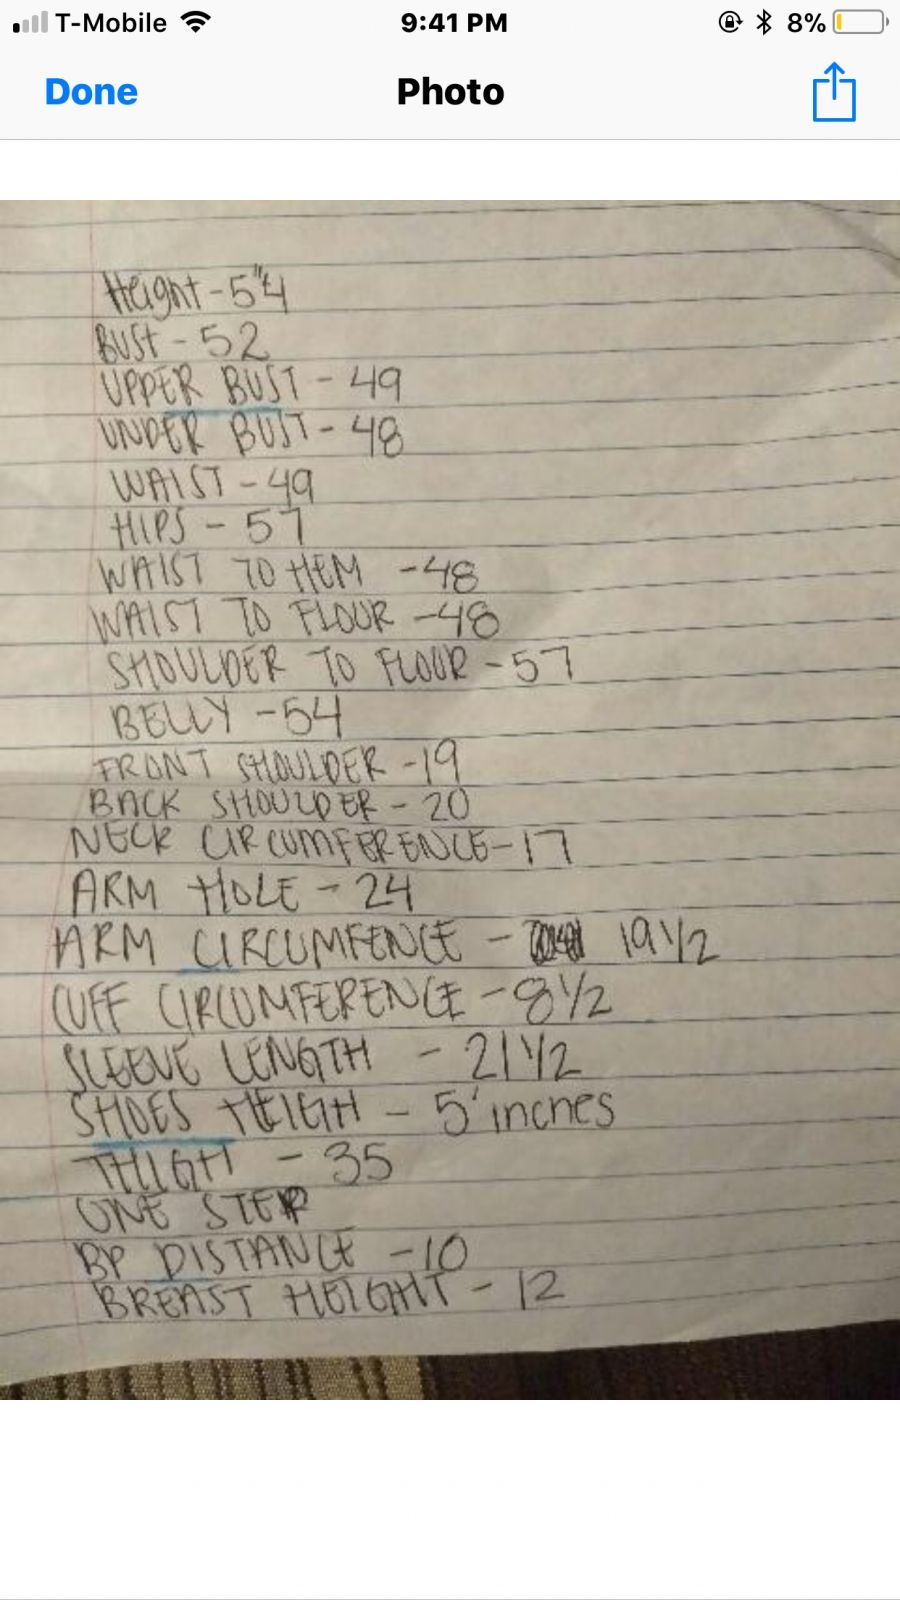 T-Mobile 9:41 PM 8%
Done Photo
Height - 5"4
BUST - 52
UPPER BUST - 49
UNDER BUST - 48
WAIST - 49
HIPS - 57
WAIST TO HEM - 48
WAIST TO FLOUR - 48
SHOULDER TO FLOUR - 57
BELLY - 54
FRONT SHOULDER - 19
BACK SHOULDER - 20
NECK CIRCUMFERENCE - 17
ARM HOLE - 24
ARM CIRCUMFENCE - 19 1/2
CUFF CIRCUMFERENCE - 8 1/2
SLEEVE LENGTH - 21 1/2
SHOES HEIGH - 5' inches
THIGH - 35
ONE STEP
BP DISTANCE - 10
BREAST HEIGHT - 12